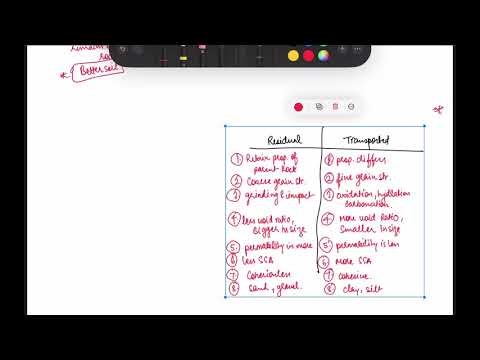 remains
* Better soil
Residual Transported
① Retain prop. of ① prop. differs
parent Rock
② Coarse grain str. ② fine grain str.
③ grinding & impact ③ oxidation, hydration
carbonation.
④ less void ratio, ④ More void Ratio,
Bigger In size Smaller In size
⑤ permability is more ⑤ permability is less
⑥ less SSA ⑥ More SSA
⑦ Cohesionless ⑦ Cohesive
⑧ Sand, gravel ⑧ clay, silt